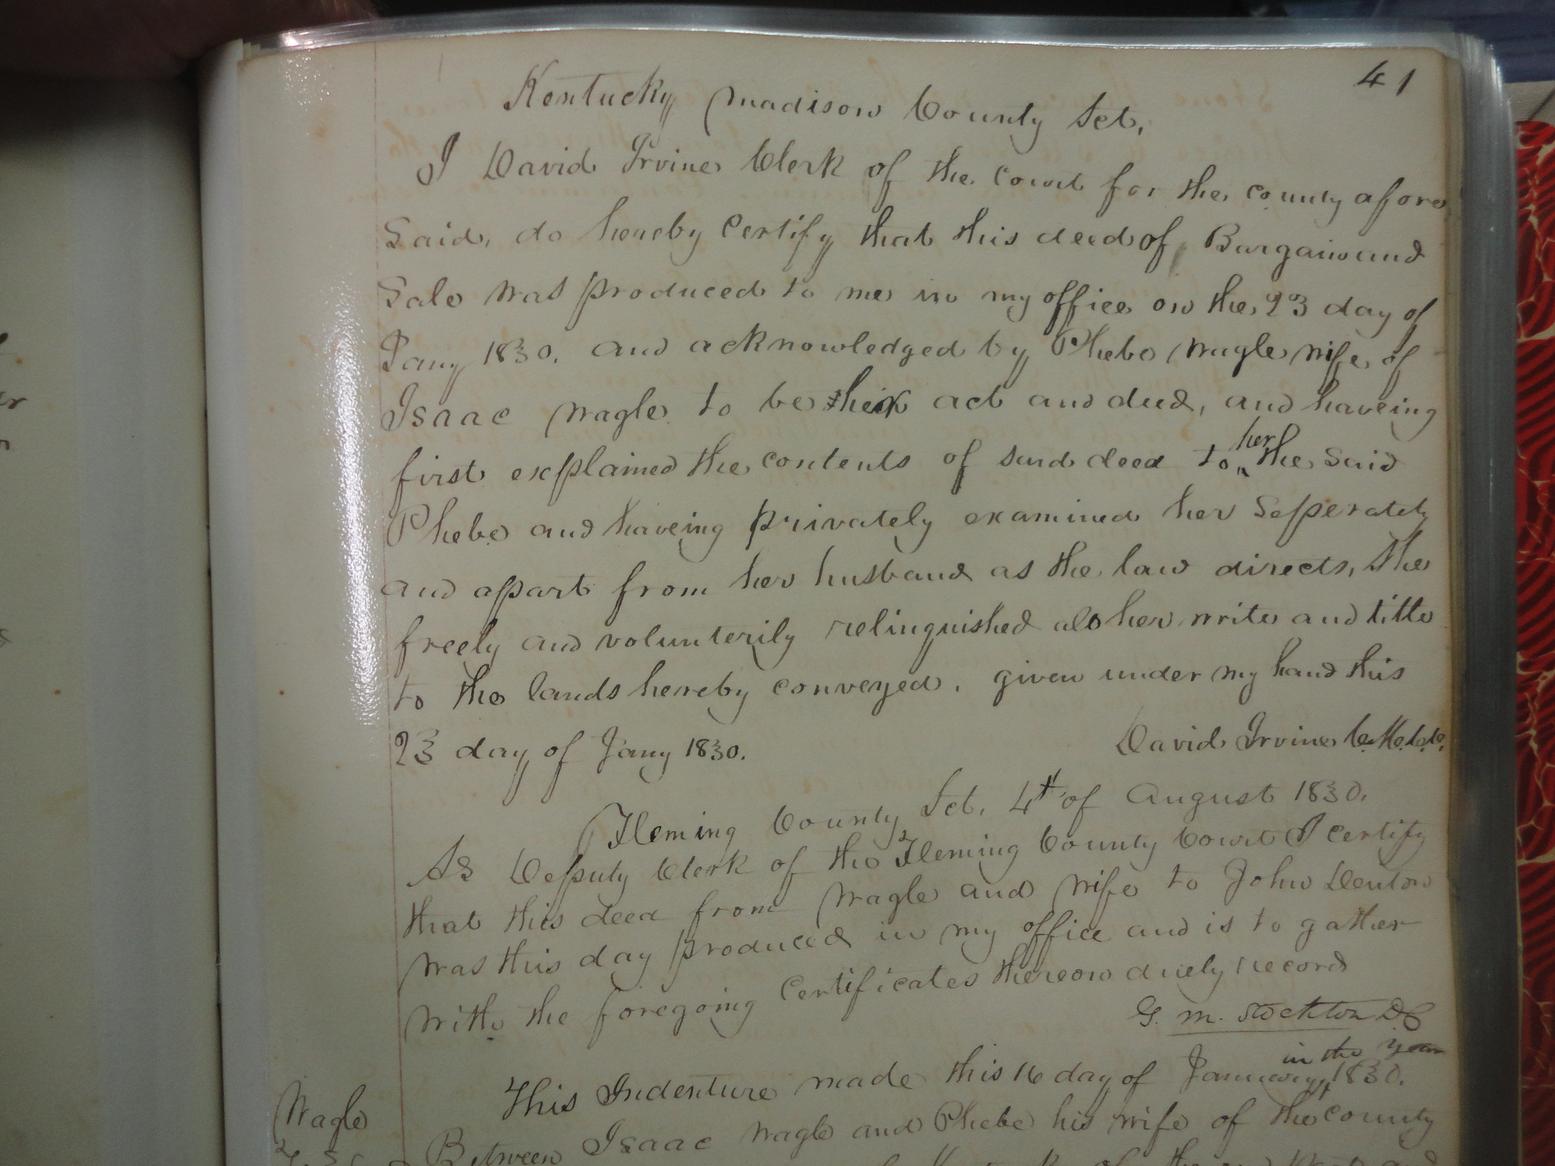 41
Kentucky Madison County Sct,
I David Irvine Clerk of the Court for the county afore
Said, do hereby Certify that this deed of Bargain and
Sale was produced to me in my office on the 23 day of
Jany 1830. and acknowledged by Phebe Wagle wife of
Isaac Wagle to be their act and deed, and haveing
first explained the contents of said deed to her the Said
Phebe and haveing privately examined her Seperately
and apart from her husband as the law directs, She
freely and volunterily relinquished all her write and title
to the lands hereby conveyed. given under my hand this
23 day of Jany 1830.
David Irvine C.M.C.C.
Fleming County Sct. 4th of August 1830.
As Deputy Clerk of the Fleming County Court I certify
that this deed from Wagle and Wife to John Denton
was this day produced in my office and is to gather
with the foregoing Certificates thereon duely record
G. M. Stockton DC
This Indenture made this 16 day of January in the year 1830.
Wagle
Between Isaac Wagle and Phebe his wife of the County